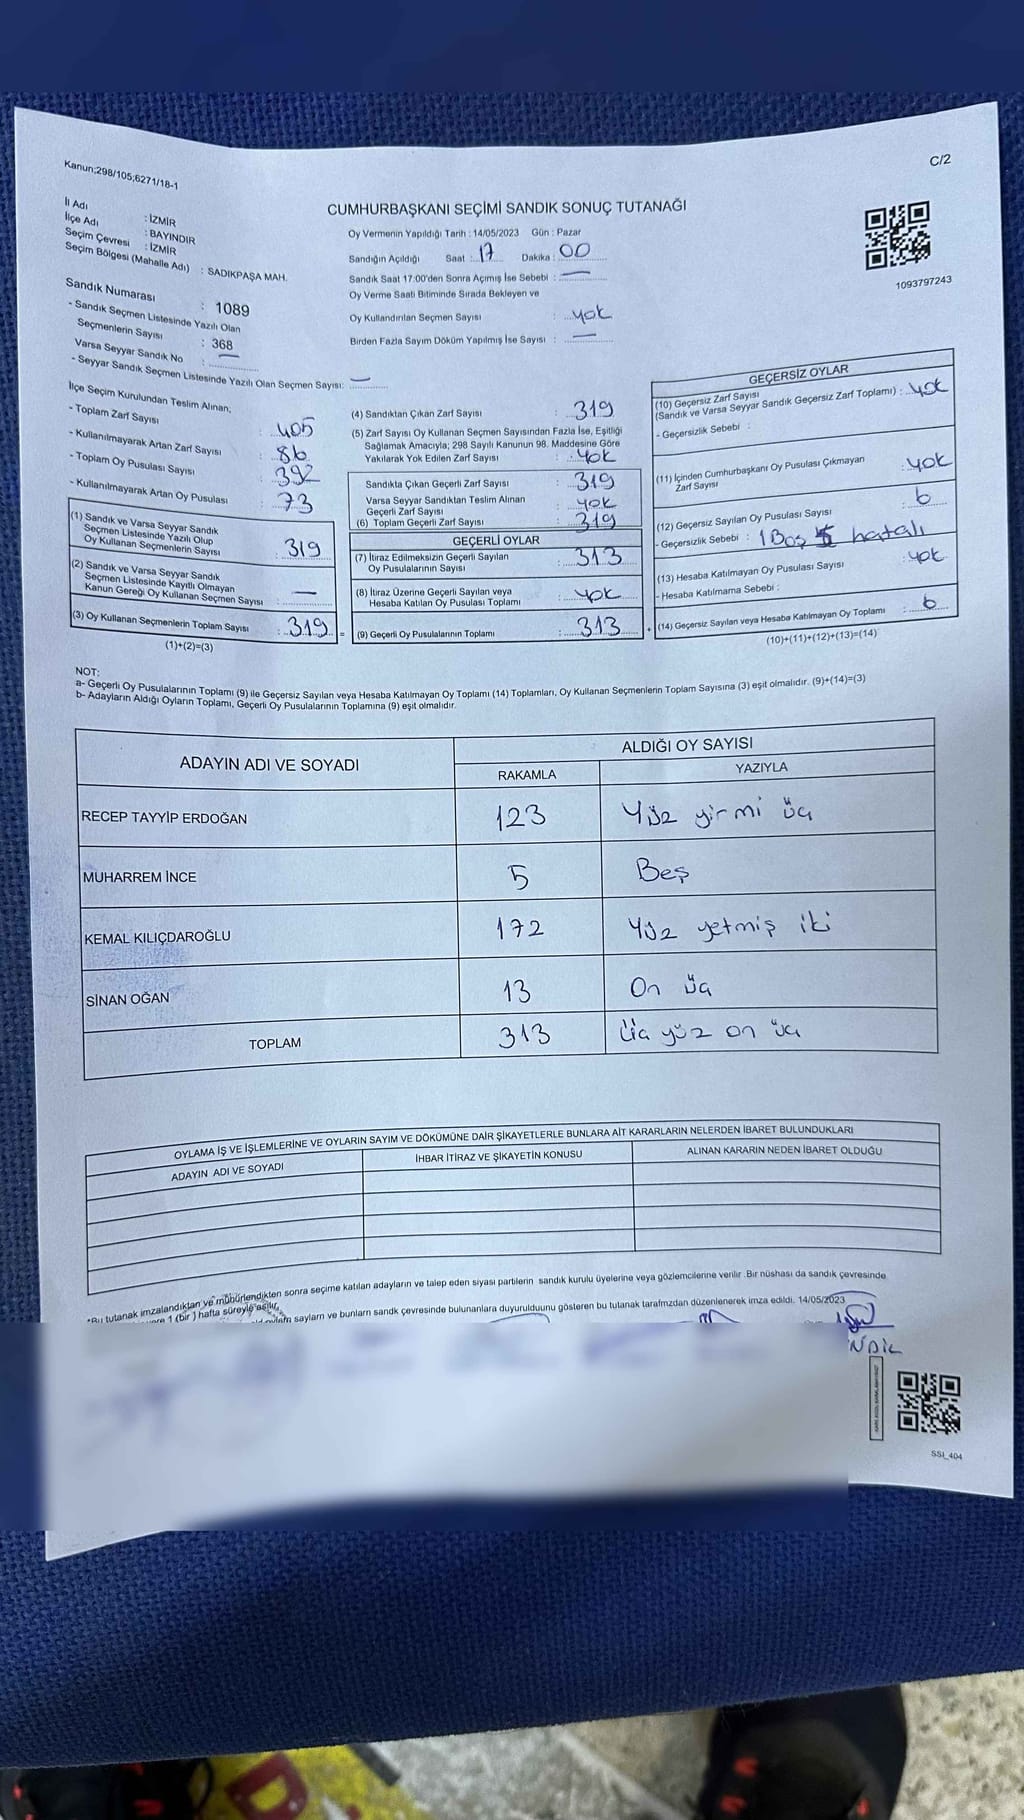 Kanun;298/105;6271/18-1
C/2
İl Adı : İZMİR
İlçe Adı : BAYINDIR
Seçim Çevresi : İZMİR
Seçim Bölgesi (Mahalle Adı) : SADIKPAŞA MAH.
Sandık Numarası : 1089
- Sandık Seçmen Listesinde Yazılı Olan
Seçmenlerin Sayısı : 368
Varsa Seyyar Sandık No : —
- Seyyar Sandık Seçmen Listesinde Yazılı Olan Seçmen Sayısı: —
CUMHURBAŞKANI SEÇİMİ SANDIK SONUÇ TUTANAĞI
Oy Vermenin Yapıldığı Tarih : 14/05/2023 Gün : Pazar
Sandığın Açıldığı Saat : 17 Dakika : 00
Sandık Saat 17:00'den Sonra Açılmış İse Sebebi : —
Oy Verme Saati Bitiminde Sırada Bekleyen ve
Oy Kullandırılan Seçmen Sayısı : yok
Birden Fazla Sayım Döküm Yapılmış İse Sayısı : —
1093797243
İlçe Seçim Kurulundan Teslim Alınan;
- Toplam Zarf Sayısı : 405
- Kullanılmayarak Artan Zarf Sayısı : 86
- Toplam Oy Pusulası Sayısı : 392
- Kullanılmayarak Artan Oy Pusulası : 73
(1) Sandık ve Varsa Seyyar Sandık
Seçmen Listesinde Yazılı Olup
Oy Kullanan Seçmenlerin Sayısı : 319
(2) Sandık ve Varsa Seyyar Sandık
Seçmen Listesinde Kayıtlı Olmayan
Kanun Gereği Oy Kullanan Seçmen Sayısı : —
(3) Oy Kullanan Seçmenlerin Toplam Sayısı : 319 =
(1)+(2)=(3)
(4) Sandıktan Çıkan Zarf Sayısı : 319
(5) Zarf Sayısı Oy Kullanan Seçmen Sayısından Fazla İse, Eşitliği
Sağlamak Amacıyla; 298 Sayılı Kanunun 98. Maddesine Göre
Yakılarak Yok Edilen Zarf Sayısı : yok
Sandıkta Çıkan Geçerli Zarf Sayısı : 319
Varsa Seyyar Sandıktan Teslim Alınan
Geçerli Zarf Sayısı : yok
(6) Toplam Geçerli Zarf Sayısı : 319
GEÇERLİ OYLAR
(7) İtiraz Edilmeksizin Geçerli Sayılan
Oy Pusulalarının Sayısı : 313
(8) İtiraz Üzerine Geçerli Sayılan veya
Hesaba Katılan Oy Pusulası Toplamı : yok
(9) Geçerli Oy Pusulalarının Toplamı : 313 +
GEÇERSİZ OYLAR
(10) Geçersiz Zarf Sayısı
(Sandık ve Varsa Seyyar Sandık Geçersiz Zarf Toplamı) : yok
- Geçersizlik Sebebi :
(11) İçinden Cumhurbaşkanı Oy Pusulası Çıkmayan
Zarf Sayısı : yok
(12) Geçersiz Sayılan Oy Pusulası Sayısı : 6
- Geçersizlik Sebebi : 1 Boş 5 hatalı
(13) Hesaba Katılmayan Oy Pusulası Sayısı : yok
- Hesaba Katılmama Sebebi :
(14) Geçersiz Sayılan veya Hesaba Katılmayan Oy Toplamı : 6
(10)+(11)+(12)+(13)=(14)
NOT:
a- Geçerli Oy Pusulalarının Toplamı (9) ile Geçersiz Sayılan veya Hesaba Katılmayan Oy Toplamı (14) Toplamları, Oy Kullanan Seçmenlerin Toplam Sayısına (3) eşit olmalıdır. (9)+(14)=(3)
b- Adayların Aldığı Oyların Toplamı, Geçerli Oy Pusulalarının Toplamına (9) eşit olmalıdır.
ADAYIN ADI VE SOYADI ALDIĞI OY SAYISI
RAKAMLA YAZIYLA
RECEP TAYYİP ERDOĞAN 123 Yüz yirmi üç
MUHARREM İNCE 5 Beş
KEMAL KILIÇDAROĞLU 172 Yüz yetmiş iki
SİNAN OĞAN 13 On üç
TOPLAM 313 Üç yüz on üç
OYLAMA İŞ VE İŞLEMLERİNE VE OYLARIN SAYIM VE DÖKÜMÜNE DAİR ŞİKAYETLERLE BUNLARA AİT KARARLARIN NELERDEN İBARET BULUNDUKLARI
ADAYIN ADI VE SOYADI İHBAR İTİRAZ VE ŞİKAYETİN KONUSU ALINAN KARARIN NEDEN İBARET OLDUĞU
*Bu tutanak imzalandıktan ve mühürlendikten sonra seçime katılan adayların ve talep eden siyasi partilerin sandık kurulu üyelerine veya gözlemcilerine verilir .Bir nüshası da sandık çevresinde
1 (bir ) hafta süreyle asılır.
sayların ve bunların sandk çevresinde bulunanlara duyurulduunu gösteren bu tutanak tarafmzdan düzenlenerek imza edildi. 14/05/2023
SSI_404